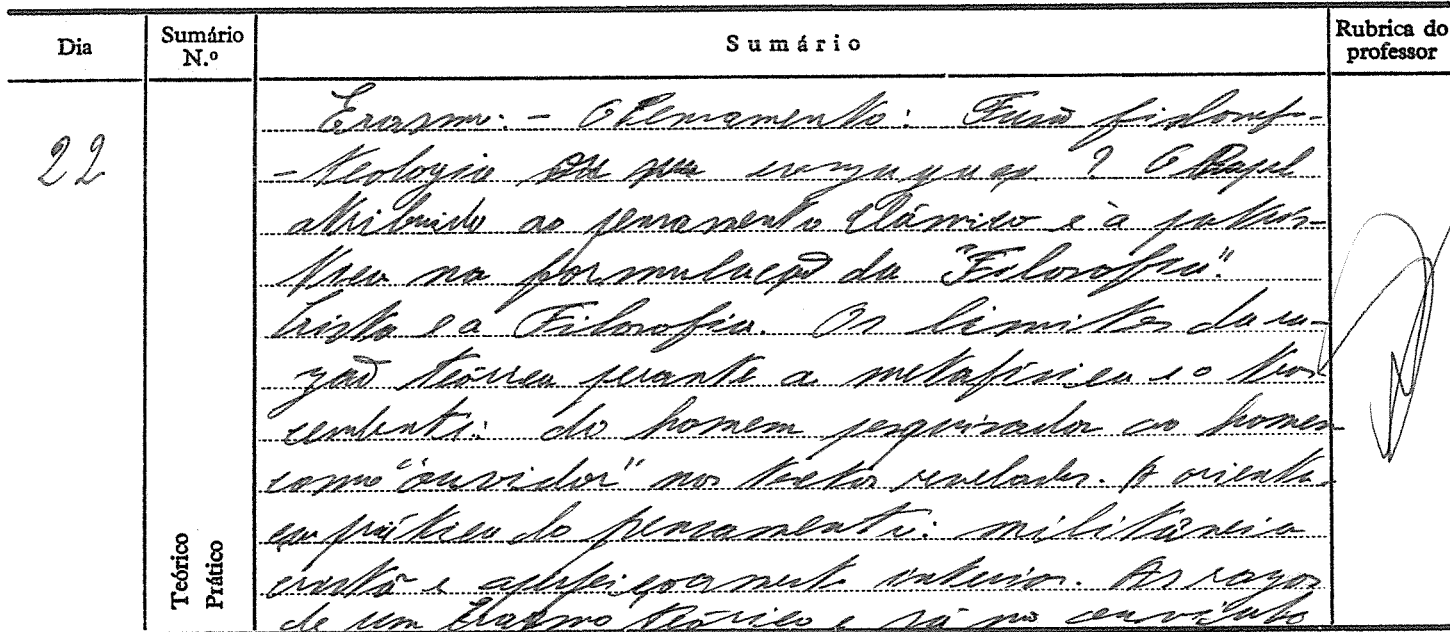 Dia Sumário N.º Sumário Rubrica do professor
22
Erasmo: - O Pensamento: Fusão filosof-
- teologia ou sua conjugação? O Papel
atribuido ao pensamento clássico e à patrís-
tica na formulação da "Filosofia"
Cristã e a Filosofia. Os limites da ra-
zão teórica perante a metafísica e o trans-
cendente: do homem pesquisador ao homem
como "ouvidor" nos textos revelados. A orienta-
ção prática do pensamento: militância
cristã e aperfeiçoamento interior. As razões
de um Erasmo teórico e só no
Teórico
Prático